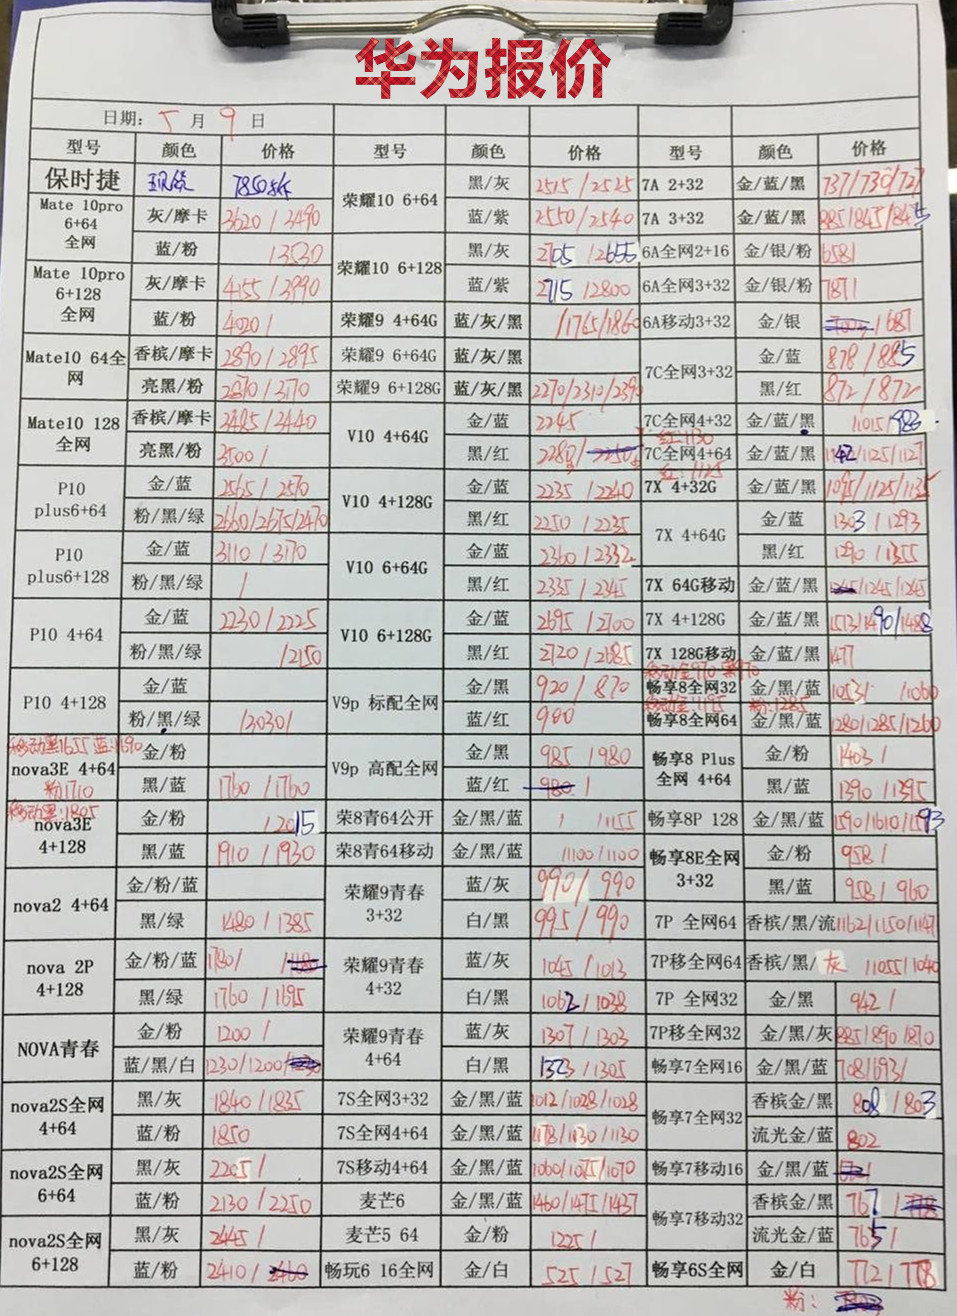 华为报价
日期: 5 月 9 日
型号 颜色 价格 型号 颜色 价格 型号 颜色 价格
保时捷 荣耀10 6+64 黑/灰 2515/2525 7A 2+32 金/蓝/黑 737/730/727
Mate 10pro 6+64 全网 灰/摩卡 3620/3490 蓝/紫 2550/2540 7A 3+32 金/蓝/黑
蓝/粉 /3530 荣耀10 6+128 黑/灰 2705/2655 6A全网2+16 金/银/粉 658/
Mate 10pro 6+128 全网 灰/摩卡 4155/3990 蓝/紫 2715/2800 6A全网3+32 金/银/粉 787/
蓝/粉 4020/ 荣耀9 4+64G 蓝/灰/黑 /1765/1860 6A移动3+32 金/银 /687
Mate10 64全网 香槟/摩卡 2890/2895 荣耀9 6+64G 蓝/灰/黑 7C全网3+32 金/蓝 878/885
亮黑/粉 2870/3170 荣耀9 6+128G 蓝/灰/黑 2270/2310/2390 黑/红 872/872
Mate10 128全网 香槟/摩卡 3495/3440 V10 4+64G 金/蓝 2245 7C全网4+32 金/蓝/黑 /1015/983
红:1130
亮黑/粉 3500/ 黑/红 2280/ 7C全网4+64 金/蓝/黑 1142/1125/1127
红:1125
P10 plus6+64 金/蓝 2565/2570 V10 4+128G 金/蓝 2235/2240 7X 4+32G 金/蓝/黑 1095/1125/1135
粉/黑/绿 2660/2675/2470 黑/红 2250/2235 7X 4+64G 金/蓝 1303/1293
P10 plus6+128 金/蓝 3110/3170 V10 6+64G 金/蓝 2360/2332 黑/红 1290/1355
粉/黑/绿 / 黑/红 2335/2345 7X 64G移动 金/蓝/黑 /1245/1245
P10 4+64 金/蓝 2230/2225 V10 6+128G 金/蓝 2695/2700 7X 4+128G 金/蓝/黑 1513/1490/1488
粉/黑/绿 /2150 黑/红 2720/2685 7X 128G移动 金/蓝/黑 1477
移动金970 黑970
P10 4+128 金/蓝 V9p 标配全网 金/黑 920/870 畅享8全网32 金/黑/蓝 1053/ /1060
移动金:1195 粉:1285
粉/黑/绿 /2030/ 蓝/红 900 畅享8全网64 金/黑/蓝 1280/1285/1260
移动黑1655 蓝:1690
nova3E 4+64 金/粉 V9p 高配全网 金/黑 985/980 畅享8 Plus 全网 4+64 金/粉 1403/
粉1710
黑/蓝 1760/1760 蓝/红 980/ 黑/蓝 1390/1395
移动黑:1805
nova3E 4+128 金/粉 /2015 荣8青64公开 金/黑/蓝 / /1155 畅享8P 128 金/黑/蓝 1590/1610/1593
黑/蓝 1910/1930 荣8青64移动 金/黑/蓝 /1100/1100 畅享8E全网 3+32 金/粉 958/
nova2 4+64 金/粉/蓝 荣耀9青春 3+32 蓝/灰 990/990 黑/蓝 958/960
黑/绿 1480/1385 白/黑 995/990 7P 全网64 香槟/黑/流 1162/1150/1147
nova 2P 4+128 金/粉/蓝 1780/ 荣耀9青春 4+32 蓝/灰 1045/1013 7P移全网64 香槟/黑/灰 /1055/1040
黑/绿 1760/1695 白/黑 1062/1038 7P 全网32 金/黑 942/
NOVA青春 金/粉 1200/ 荣耀9青春 4+64 蓝/灰 1307/1303 7P移全网32 金/黑/灰 885/890/870
蓝/黑/白 1230/1200/ 白/黑 1323/1305 畅享7全网16 金/黑/蓝 708/693/
nova2S全网 4+64 黑/灰 1840/1835 7S全网3+32 金/黑/蓝 1012/1028/1028 畅享7全网32 香槟金/黑 808/803
蓝/粉 1850 7S全网4+64 金/黑/蓝 1178/1130/1130 流光金/蓝 802
nova2S全网 6+64 黑/灰 2205/ 7S移动4+64 金/黑/蓝 1060/1075/1070 畅享7移动16 金/黑/蓝
蓝/粉 2130/2250 麦芒6 金/黑/蓝 1460/1475/1437 畅享7移动32 香槟金/黑 767/
nova2S全网 6+128 黑/灰 2445/ 麦芒5 64 金/粉 1225/ 流光金/蓝 765/
蓝/粉 2410/ 畅玩6 16全网 金/白 525/527 畅享6S全网 金/白 772/778
粉: